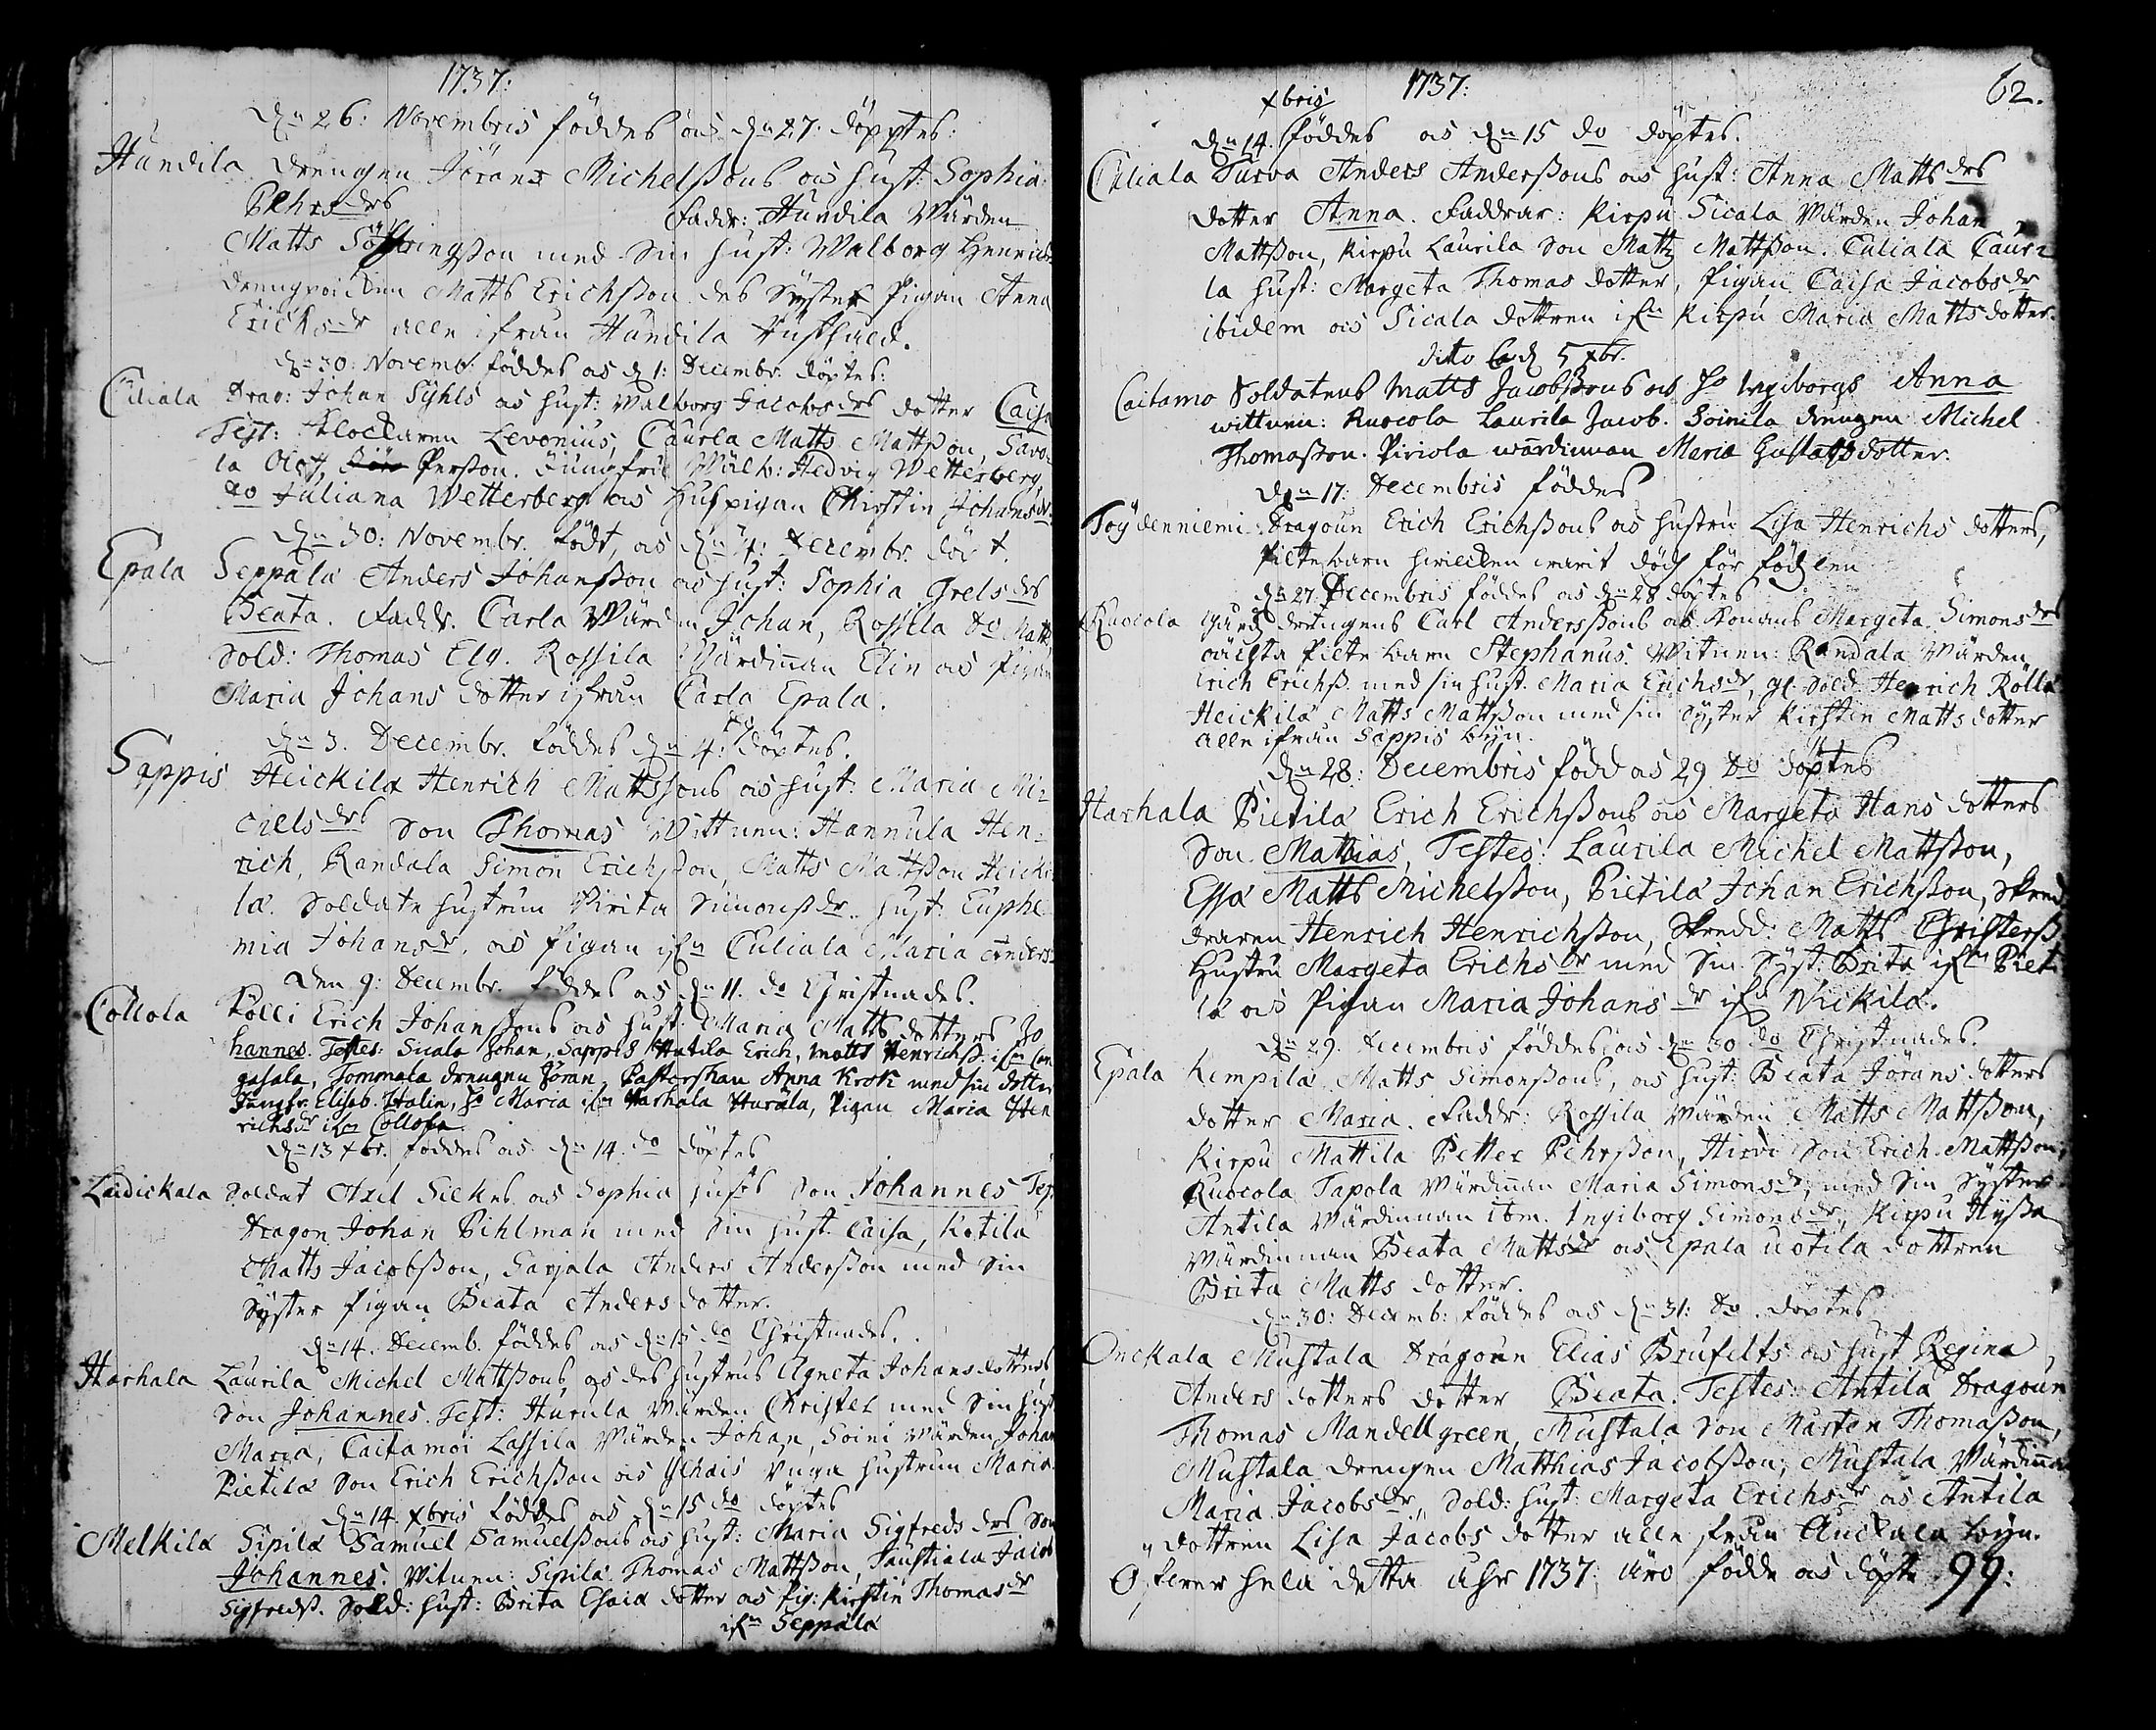 1737:
dn 26: Novembris föddes och dn 27: döpptes:
Hundila drengen Jörans Michelßons och Hust: Sophia
Pehrsdrs Faddr: Hundila Wärden
Matts Söffringßon med Sin Hust: Walborg Henrics
drengpoicken Matts Erichßon des Syster Pigan Anna
Erichsdr alle ifrån Hundila Husthåld.
dn 30: Novemb: föddes och d 1: Decembr. döptes:
Culiala Drag: Johan Syhls och Hust: Walborg Jacobsdrs dotter Caisa
Test: Klockaren Levonius, Caurla Matts Mattßon, Savo-
la Olof Perßon. Jungfru Wälb: Hedvig Wetterberg,
do Juliana Wetterberg och Huspigan Chirstin Johansdr
dn 30: Novembr. födt, och dn 4: Decembr. döpt.
Epala Seppälä Anders Johanßon och Hust: Sophia Grelsdrs
Beata. Faddr. Carla Wärden Johan, Rossila do Matts,
Sold: Thomas Elg. Rossila Wärdinnan Elin och Pigan
Maria Johans dotter ifrån Carla Epala.
dn 3. Decembr. föddes dn 4: do döptes.
Sappis Heickilä Henrich Mattssons och Hust: Maria Mi-
cielsdrs Son Thomas Wittnen: Hannula Hen-
rich, Randala Simon Erichßon, Matts Mattßon Heicki
lä. Soldate hustrun Virita Simonsdr. Hust: Euphe
mia Johansdr. och Pigan ifn Culiala Maria Anders
Den 9: Decembr. föddes och dn 11. do Christnades.
Collola Kolli Erich Johanßons och Hust: Maria Matts dotters Jo
hannes. Testes: Sicala Johan, Sappis Hutila Erich, Matts Henrichß. ifn Can
gasala, Tommola drengen Jöran, Pastorskan Anna Krok med sin dotter
Jungfr. Elisab. Thalin, Ho Maria ifn Harhala Hurula, Pigan Maria Hen
richsdr ifn Collola.
dn 13 Xbr. föddes och dn 14. do döptes
Laidickala Soldat Axel Silkes och Sophia Hust:s Son Johannes Tes
Dragon Johan Pihlman med Sin Hust Caisa, Kotila
Matts Jacobßon, Sarjala Anders Anderßon med Sin
Syster Pigan Beata Anders dotter.
dn 14. Decemb. föddes och dn 15 do Christnades.
Harhala Laurila Michel Mattßons och des Hustrus Agneta Johansdotters
Son Johannes. Test: Hurula Wärden Christer med Sin Hust
Maria, Caitamoi Lassila Wärden Johan, Soini Wärden Johan
Pietilä Son Erich Erichßon och Unga Hustrun Maria.
dn 14 Xbris föddes och dn 15 do döptes
Melkilä Sipilä Samuel Samuelßons och Hust: Maria Sigfreds drs Son
Johannes. Witnen: Sipilä Thomas Mattßon, Jaustiala Jacob
Sigfredß. Sold: Hust: Brita Esaiæ dotter och Pig: Kirstin Thomasdr
ifn Seppälä
1737: 62.
Xbris
dn 14. föddes och dn 15 do döptes.
Culiala Turva Anders Anderßons och Hust: Anna Mattsdrs
dotter Anna. Faddrar: Kirpu Sicala Wärden Johan
Mattßon, Kirpu Laurila Son Matts Mattßon. Culiala Caur-
la Hust: Margeta Thomas dotter, Pigan Caisa Jacobsdr
ibidem och Sicala dottren ifn Kirpu Maria Matts dotter.
dito 5 Xbr.
Caitamo Soldatens Matts Jacobßons och Ho Ingiborgs Anna
wittnen: Ruocola Laurila Jacob. Soinila drengen Michel
Thomaßon. Piriola wärdinnan Maria Gustafs dotter.
dn 17: Decembris föddes
Toÿdenniemi Dragoun Erich Erichßons och Hustru Lisa Henrichs dotters,
Piltebarn hwilcken warit död för födslen
dn 27. Decembris föddes och dn 28 döptes
Ruocola Gård drengens Carl Anderßons och Konans Margeta Simonsdrs
oächta Pilte barn Stephanus. Witnen: Randala Wärden
Erich Erichß. med sin Hust. Maria Erichsdr, gl. Sold Henrich Rolla
Heickilä Matts Mattßon med sin Syster Kirstin Matts dotter
alle ifrån Sappis byn.
dn 28: Decembris född och 29 do döptes
Harhala Pietilä Erich Erichßons och Margeta Hans dotters
Son Mathias, Testes: Laurila Michel Mattßon,
Essa Matts Michelßon, Pietilä Johan Erichßon, Skred
draren Henrich Henrichßon, Skredd: Matts Christerß
Hustru Margeta Erichsdr med Sin Syst: Brita ifn Piet
lä och Pigan Maria Johansdr ifn Nickilä.
dn 29. Decembris föddes och dn 30 do Christnades.
Epala Kempilä Matts Simonßons, och Hust: Beata Jörans dotters
dotter Maria. Faddr: Rossila Wärden Matts Mattßon,
Kirpu Mattila Petter Pehrßon, Hirvi Son Erich Mattßon,
Ruocola Tapola Wärdinnan Maria Simonsdr, med Sin Syster
Antila Wärdinnan ibm. Ingiborg Simonsdr, Kirpu Hyßa
Wärdinnan Beata Mattsdr och Epala uotila dottren
Brita Matts dotter.
dn 30: Decemb: föddes och dn 31: do döptes
Onckala Mustala Dragoun Elias Brufelts och Hust Regina
Anders dotters dotter Beata. Testes: Antila Dragoun
Thomas Mandellgreen, Mustala Son Mårten Thomaßon,
Mustala drengen Matthias Jacobßon, Mustala Wärdinna
Maria Jacobsdr, Sold: Hust: Margeta Erichsdr och Antila
dottren Lisa Jacobs dotter alle ifrån Auckala byn.
Öfwer hela detta åhr 1737 äro födde och döpte 99: